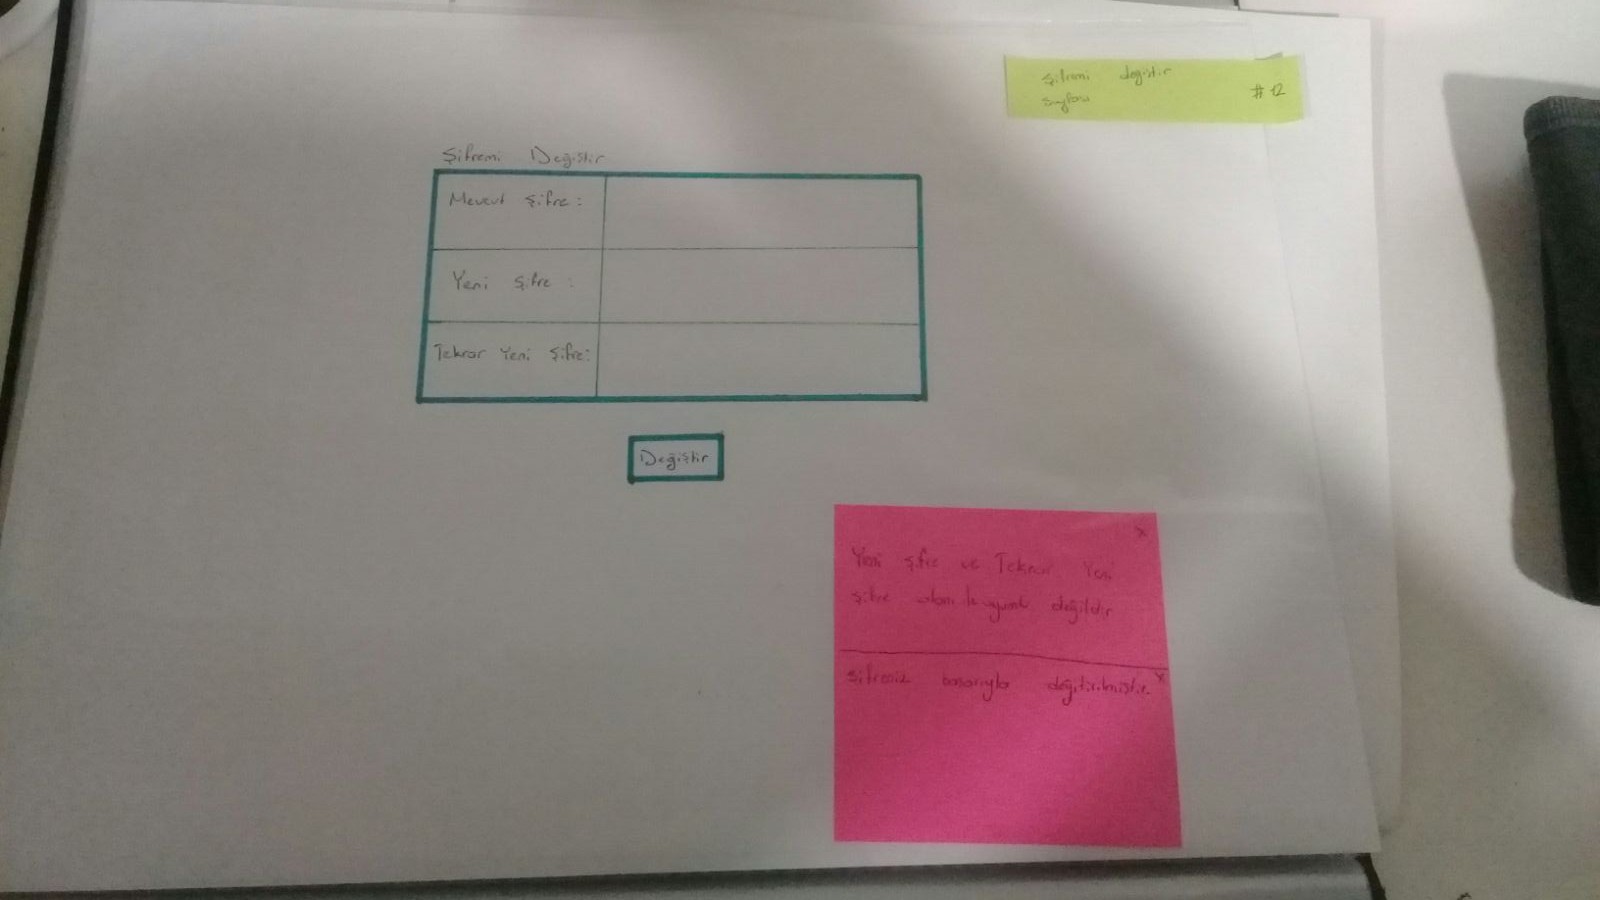 Şifremi değiştir
sayfası #12
Şifremi Değiştir
Mevcut Şifre:
Yeni Şifre:
Tekrar Yeni Şifre:
Değiştir
X
Yeni Şifre ve Tekrar Yeni
Şifre değildir
X
Şifreniz başarıyla değiştirilmiştir.